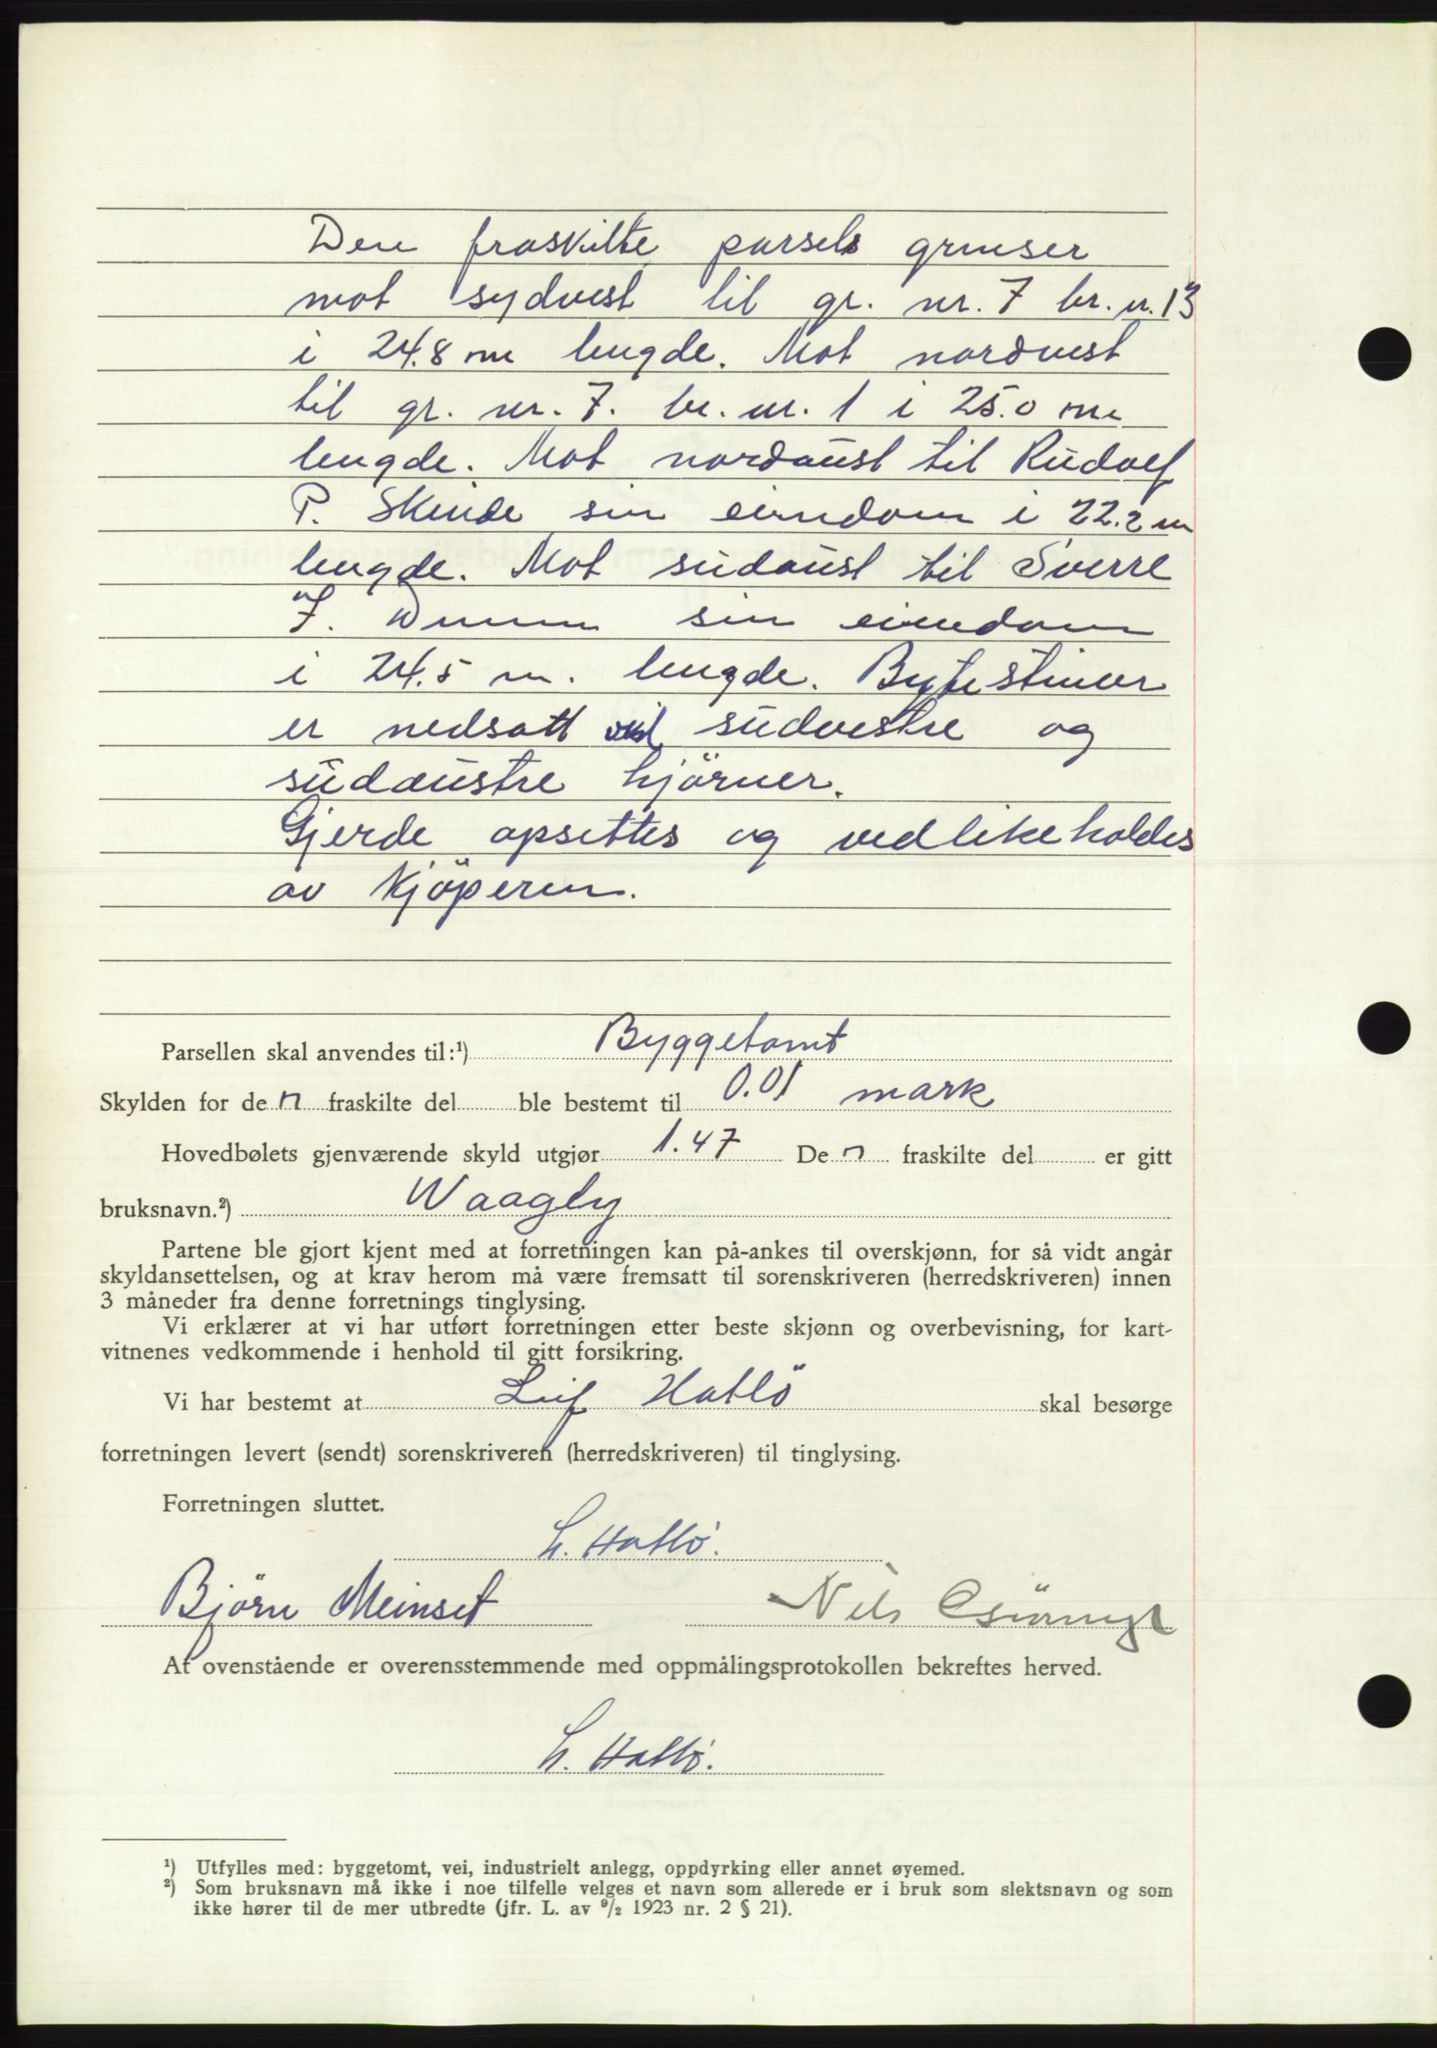 Den fraskilte parsels grenser
mot sydvest til gr. nr. 7 br. nr. 13
i 24.8 m lengde. Mot nordvest
til gr. nr. 7. br. nr. 1 i 25.0 m
lengde. Mot nordaust til Rudolf
P. Skeide sin eiendom i 22.2 m
lengde. Mot sudaust til Sverre
J. sin eiendom
i 24.5 m. lengde. Bytestiner
er nedsatt ved sudvestre og
sudaustre hjörner.
Gjerde opsettes og vedlikeholdes
av kjöperen.
Parsellen skal anvendes til:¹) Byggetomt
Skylden for de n fraskilte del ble bestemt til 0.01 mark
Hovedbølets gjenværende skyld utgjør 1.47 De n fraskilte del er gitt
bruksnavn.²) Waagly
Partene ble gjort kjent med at forretningen kan på-ankes til overskjønn, for så vidt angår
skyldansettelsen, og at krav herom må være fremsatt til sorenskriveren (herredskriveren) innen
3 måneder fra denne forretnings tinglysing.
Vi erklærer at vi har utført forretningen etter beste skjønn og overbevisning, for kart-
vitnenes vedkommende i henhold til gitt forsikring.
Vi har bestemt at Leif Hatlö skal besørge
forretningen levert (sendt) sorenskriveren (herredskriveren) til tinglysing.
Forretningen sluttet.
L. Hatlö.
Björn Meinset Nils
At ovenstående er overensstemmende med oppmålingsprotokollen bekreftes herved.
L. Hatlö.
¹) Utfylles med: byggetomt, vei, industrielt anlegg, oppdyrking eller annet øyemed.
²) Som bruksnavn må ikke i noe tilfelle velges et navn som allerede er i bruk som slektsnavn og som
ikke hører til de mer utbredte (jfr. L. av ⁹/₂ 1923 nr. 2 § 21).